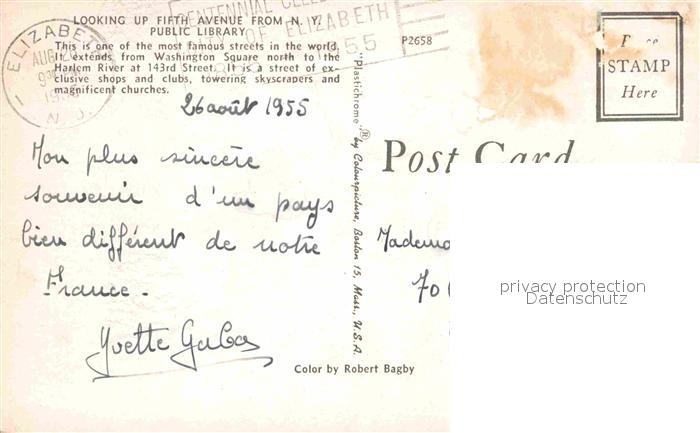 LOOKING UP FIFTH AVENUE FROM N. Y.
PUBLIC LIBRARY
This is one of the most famous streets in the world.
It extends from Washington Square north to the
Harlem River at 143rd Street. It is a street of ex-
clusive shops and clubs, towering skyscrapers and
magnificent churches.
ELIZABETH
AUG
N. J.
CENTENNIAL
OF ELIZABETH
P2658
STAMP
Here
26 août 1955
Mon plus sincère
souvenir d'un pays
bien différent de notre
France.
Yvette
"Plastichrome"® by Colourpicture, Boston 15, Mass., U.S.A.
Post Card
Mademo
70
Color by Robert Bagby
privacy protection
Datenschutz